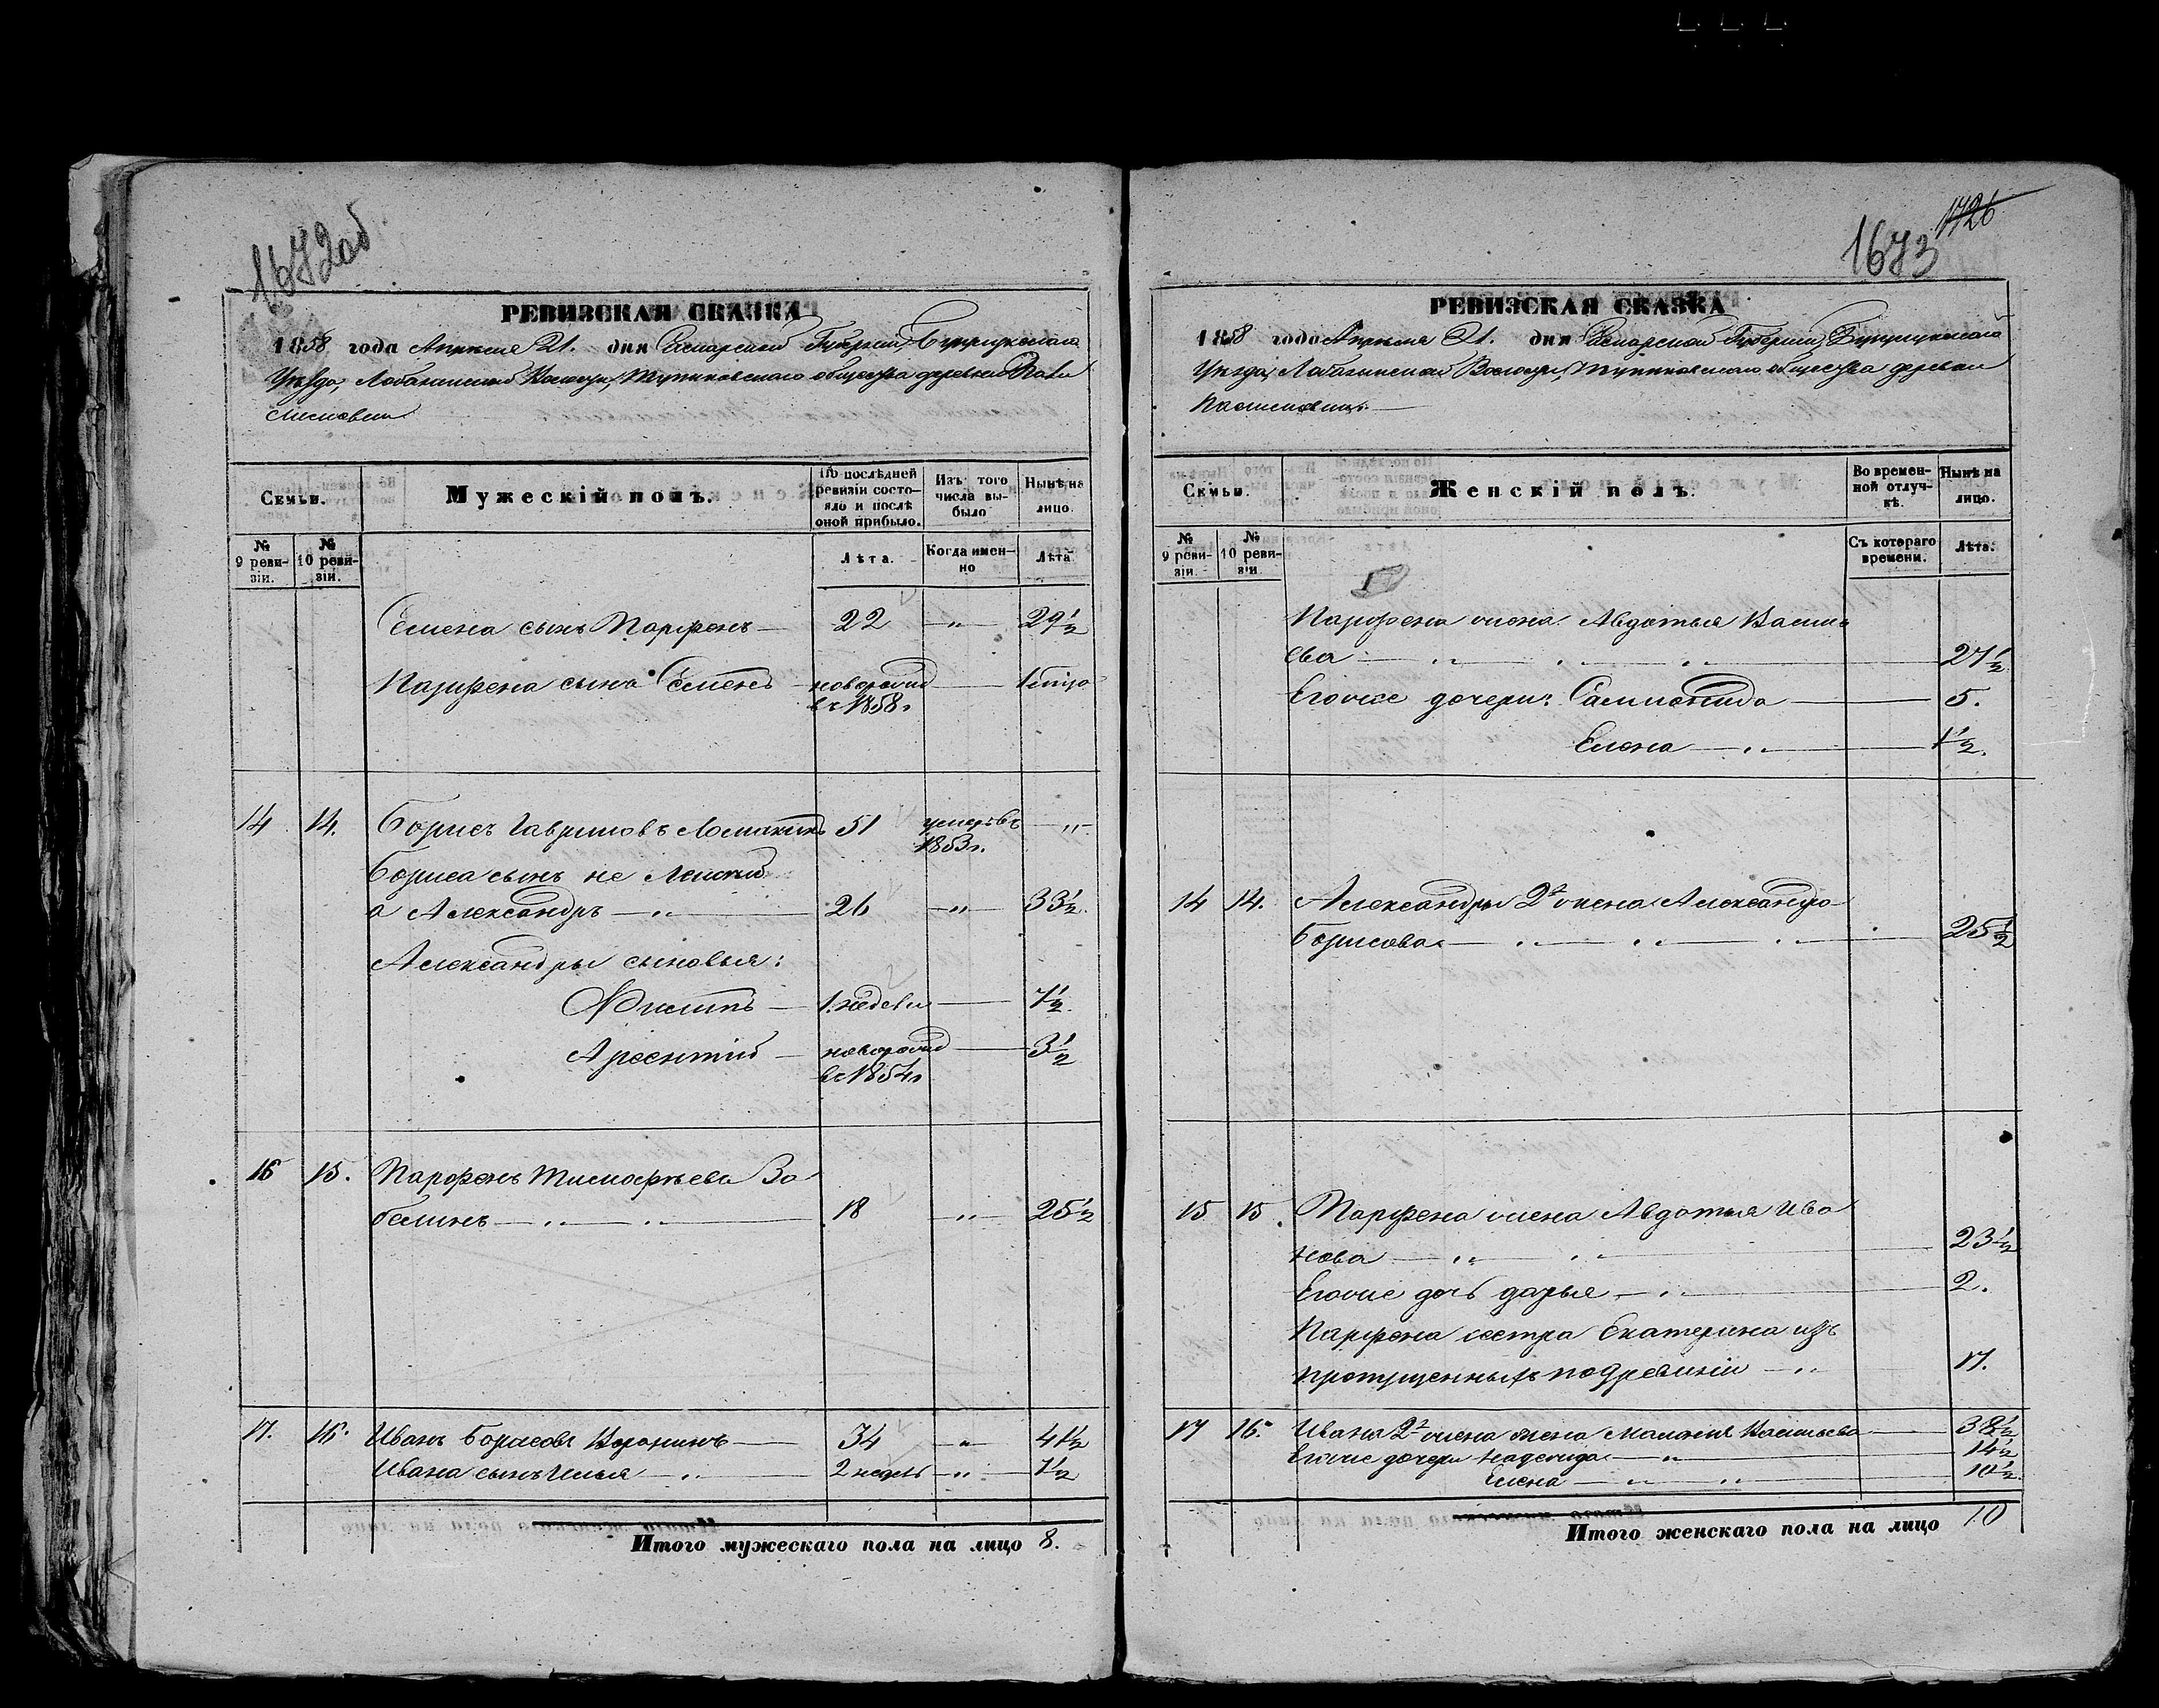 1672об
РЕВИЗСКАЯ СКАЗКА
1858 года Апреля 21. дня Самарской Губернии, Бузулукскаго
Уезда, Лобазинской Волости, общества деревни
Семьи.
Мужескій полъ.
По послѣдней ревизіи состояло и послѣ оной прибыло.
Изъ того числа выбыло
Нынѣ на лицо.
№ 9 ревизіи.
№ 10 ревизіи.
Лѣта.
Когда именно
Лѣта
Семена сынъ Парфенъ — 22 — „ — 29½
Парфена сынъ Семенъ — новорожд — 1
въ 1858г
14 14. Борисъ Гавриловъ 51 умеръ въ — „ —
1853г.
Бориса сынъ не
а Александръ — „ — 26 — „ — 33½.
Александры сыновья:
Филипъ — 1. недели — 7½.
Арсентій — новорожд — 3½
въ 1854г
16 15. Парфенъ Тимофѣевъ За
белинъ — „ — „ — 18 — „ — 25½
17. 16. Иванъ Борисовъ Воронинъ — 34 — „ — 41½
Ивана сынъ Илья — „ — 2 недель — „ — 7½
Итого мужескаго пола на лицо 8.
1726
1673
РЕВИЗСКАЯ СКАЗКА
1858 года Апреля 21. дня Самарской Губерніи, Бузулукскаго
Уезда, Лобазинской Волости, общества деревни
Семьи.
Женскій полъ.
Во временной отлучкѣ.
Нынѣ на лицо.
№ 9 ревизіи.
№ 10 ревизіи
Съ котораго времени.
Лѣта.
Парфена жена Авдотья Василь
ева — „ — „ — 27½
Егоже дочери: — 5.
Елена — „ — 1½.
14 14. Александры 2й жена Александра
Борисова — „ — „ — „ — 25½
15 15. Парфена жена Авдотья Ива
нова — „ — „ — 23½
Егоже дочь Дарья — „ — 2.
Парфена сестра Екатерина изъ
пропущенныхъ по 9 ревизіи — „ 17.
17 16. Ивана 2й жена Васильева — 38½
Егоже дочери Надежда — „ — 14½
Елена — „ — „ — 10½.
Итого женскаго пола на лицо 10